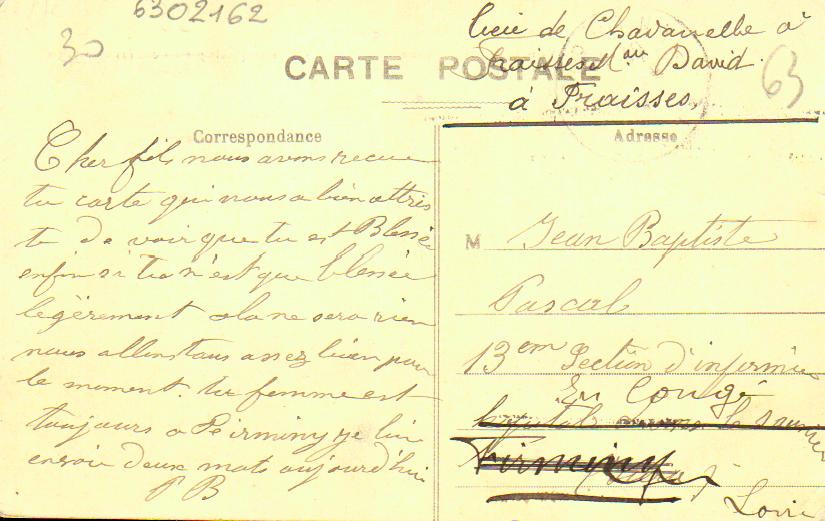 6302162
30
lieu de Chavanelle à
Fraissend au David
à Fraisses
63
CARTE POSTALE
Correspondance
Cher fils nous avons recue
ta carte qui nous a bien attris
te de voir que tu est Blessée
enfin si tu n'est que blessée
légèrement cela ne sera rien
nous allons tous assez bien pour
le moment. ta femme est
toujours a Feirminy je lui
envoie deux mots aujourd'hui
P B
Adresse
M Jean Baptiste
Pascal
13em Section d'infirmier
En Congé
Firminy
Loire